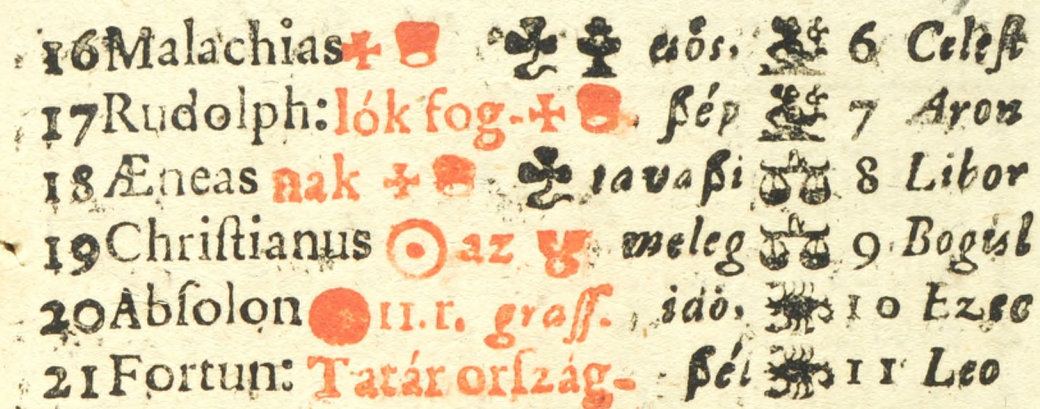 16 Malachias esös. 6 Celest
17 Rudolph: lók fog- ßép 7 Aron
18 Æneas nak tavaßi 8 Libor
19 Chriſtianus az meleg 9 Bogisl
20 Abſolon 11. r. graſſ. idö. 10 Ezec
21 Fortun: Tatár orſzág- ßél 11 Leo